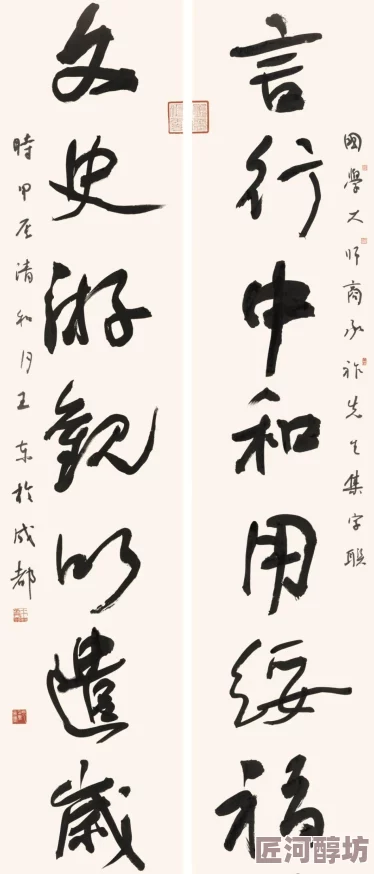 國學大師商承祚先生集字聯
言行中和用綏福
文史游觀以遣歲
時甲辰清和月王東於成都
匠河醇坊